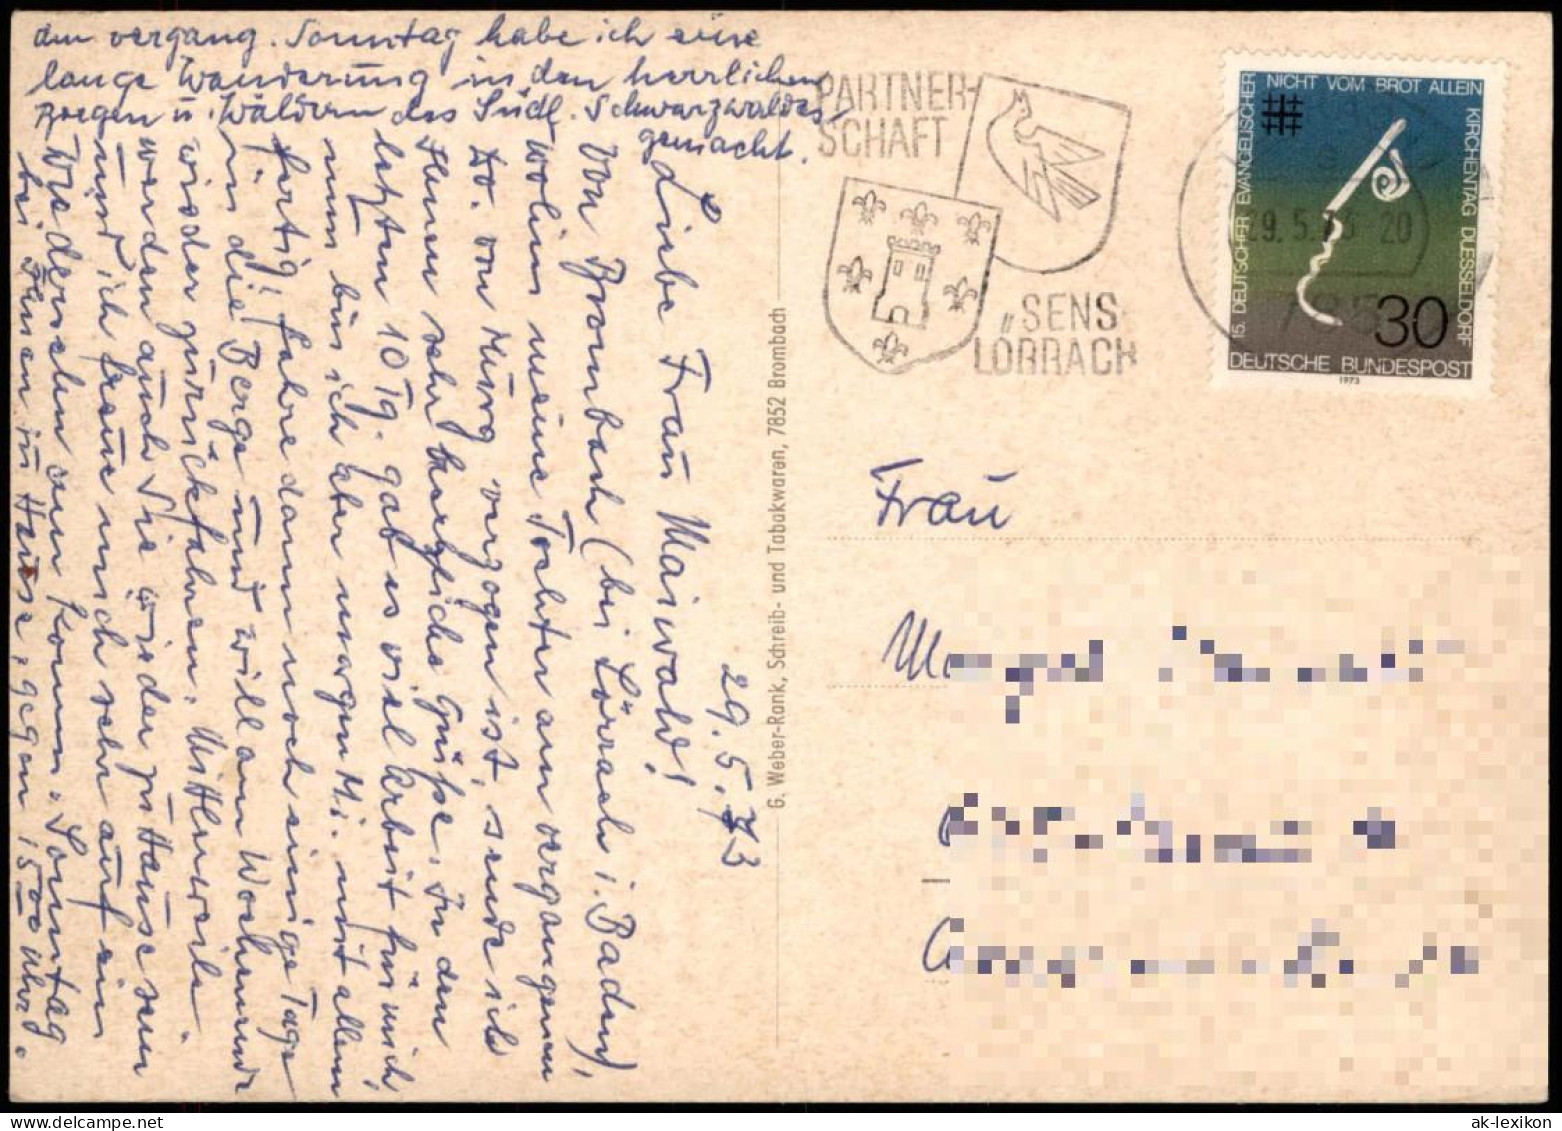 29.5.73
Liebe Frau Maiwald!
Von Brombach (bei Lörrach i. Baden),
wohin meine Tochter am vergangenen
Do. von Murg verzogen ist, sende ich
Ihnen sehr herzliche Grüße. In den
letzten 10 Tg. gab es viel Arbeit für mich,
nun bin ich aber morgen Mi. mit allem
fertig! Fahre dann noch einige Tage
in die Berge und will am Wochenende
wieder zurückfahren. Mittlerweile
werden auch Sie wieder zu Hause sein
und ich freue mich sehr auf ein
Wiedersehen am komm. Sonntag
bei Ihnen zu Hause, gegen 15 00 Uhr.
den vergang. Sonntag habe ich eine
lange Wanderung in den herrlichen
Bergen u. Wäldern des Südl. Schwarzwaldes
gemacht.
G. Weber-Rank, Schreib- und Tabakwaren, 7852 Brombach
PARTNER-
SCHAFT
SENS
LÖRRACH
29.5.73 20
785
15. DEUTSCHER EVANGELISCHER KIRCHENTAG DUESSELDORF
NICHT VOM BROT ALLEIN
30
DEUTSCHE BUNDESPOST
1973
Frau
ak-lexikon